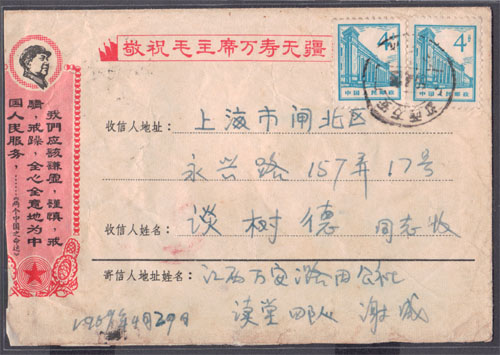 敬祝毛主席万寿无疆
4分
4分
中国人民邮政
中国人民邮政
我们应该谦虚,谨慎,戒
骄,戒躁,全心全意地为中
国人民服务,……
《两个中国之命运》
收信人地址:上海市闸北区
永兴路157弄17号
收信人姓名:谈树德 同志收
寄信人地址姓名:江西万安潞田公社
读堂
1969年4月29日